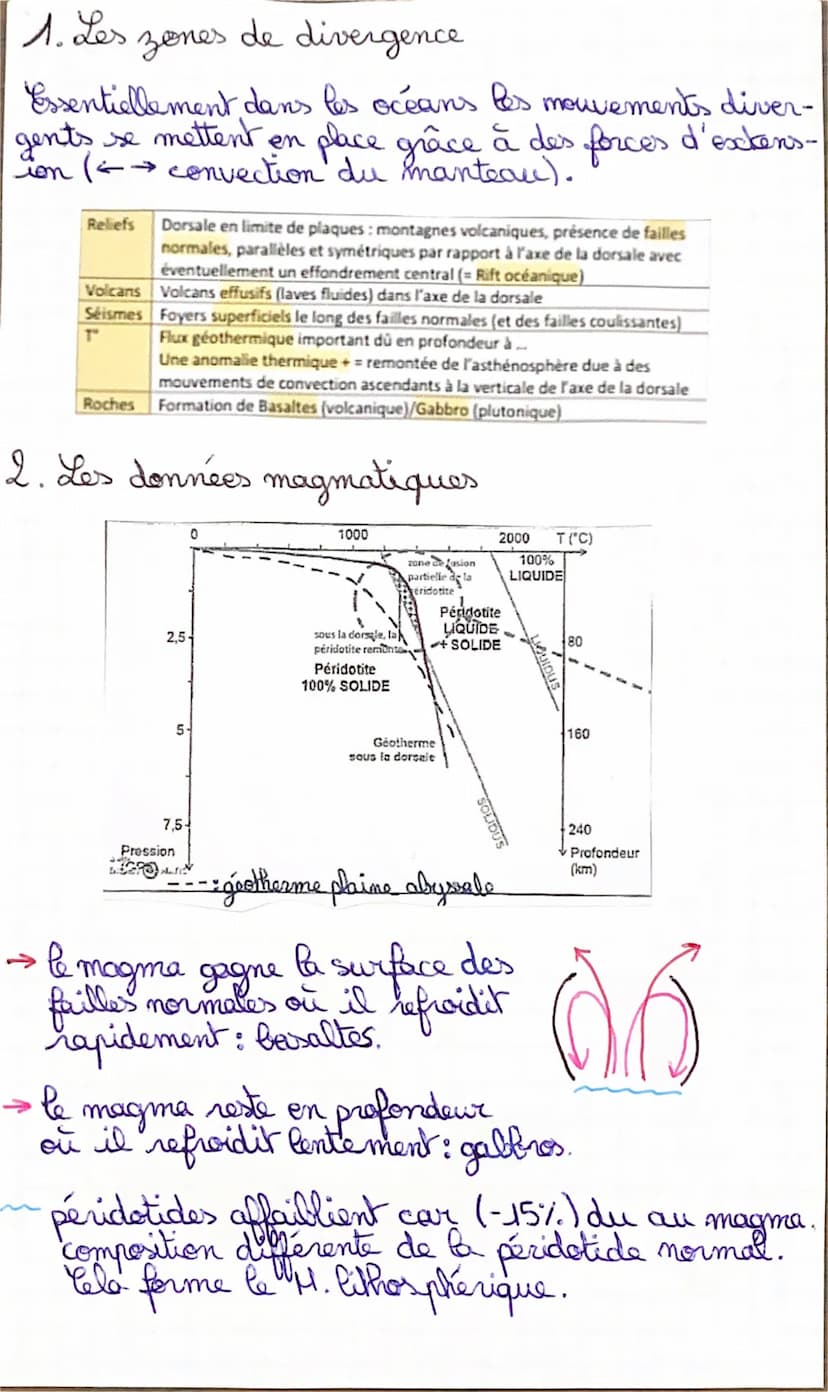 1. Les zones de divergence
Essentiellement dans les océans les mouvements diver-
gents se mettent en place grâce à des forces d'extens-
ion (← → convection du manteau).
Reliefs Dorsale en limite de plaques : montagnes volcaniques, présence de failles
normales, parallèles et symétriques par rapport à l'axe de la dorsale avec
éventuellement un effondrement central (= Rift océanique)
Volcans Volcans effusifs (laves fluides) dans l'axe de la dorsale
Séismes Foyers superficiels le long des failles normales (et des failles coulissantes)
T° Flux géothermique important dû en profondeur à ...
Une anomalie thermique + = remontée de l'asthénosphère due à des
mouvements de convection ascendants à la verticale de l'axe de la dorsale
Roches Formation de Basaltes (volcanique)/Gabbro (plutonique)
2. Les données magmatiques
0 1000 2000 T (°C)
zone de fusion
partielle de la
péridotite
100%
LIQUIDE
Péridotite
LIQUIDE
+ SOLIDE
LIQUIDUS
2,5
80
sous la dorsale, la
péridotite remonte
Péridotite
100% SOLIDE
5
160
Géotherme
sous la dorsale
SOLIDUS
7,5
240
Pression
Profondeur
(km)
---: géotherme plaine abyssale
→ le magma gagne la surface des
failles normales où il refroidit
rapidement : basaltes.
→ le magma reste en profondeur
où il refroidit lentement : gabbros.
péridotides affaiblient car (-15%) du au magma.
composition différente de la péridotide normal.
Cela forme le M. lithosphérique.